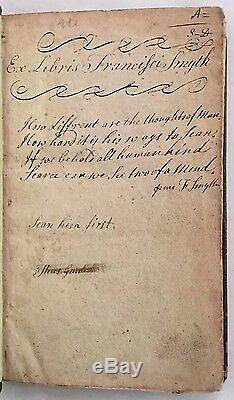 A=
S=D
Ex Libris Francisci Smyth
How diffrent are the thoughts of Man,
How hard it is his ways to Scan,
If you behold all human kind
Scarce can we See two of a Mind.
F. Smyth
Scan him first.